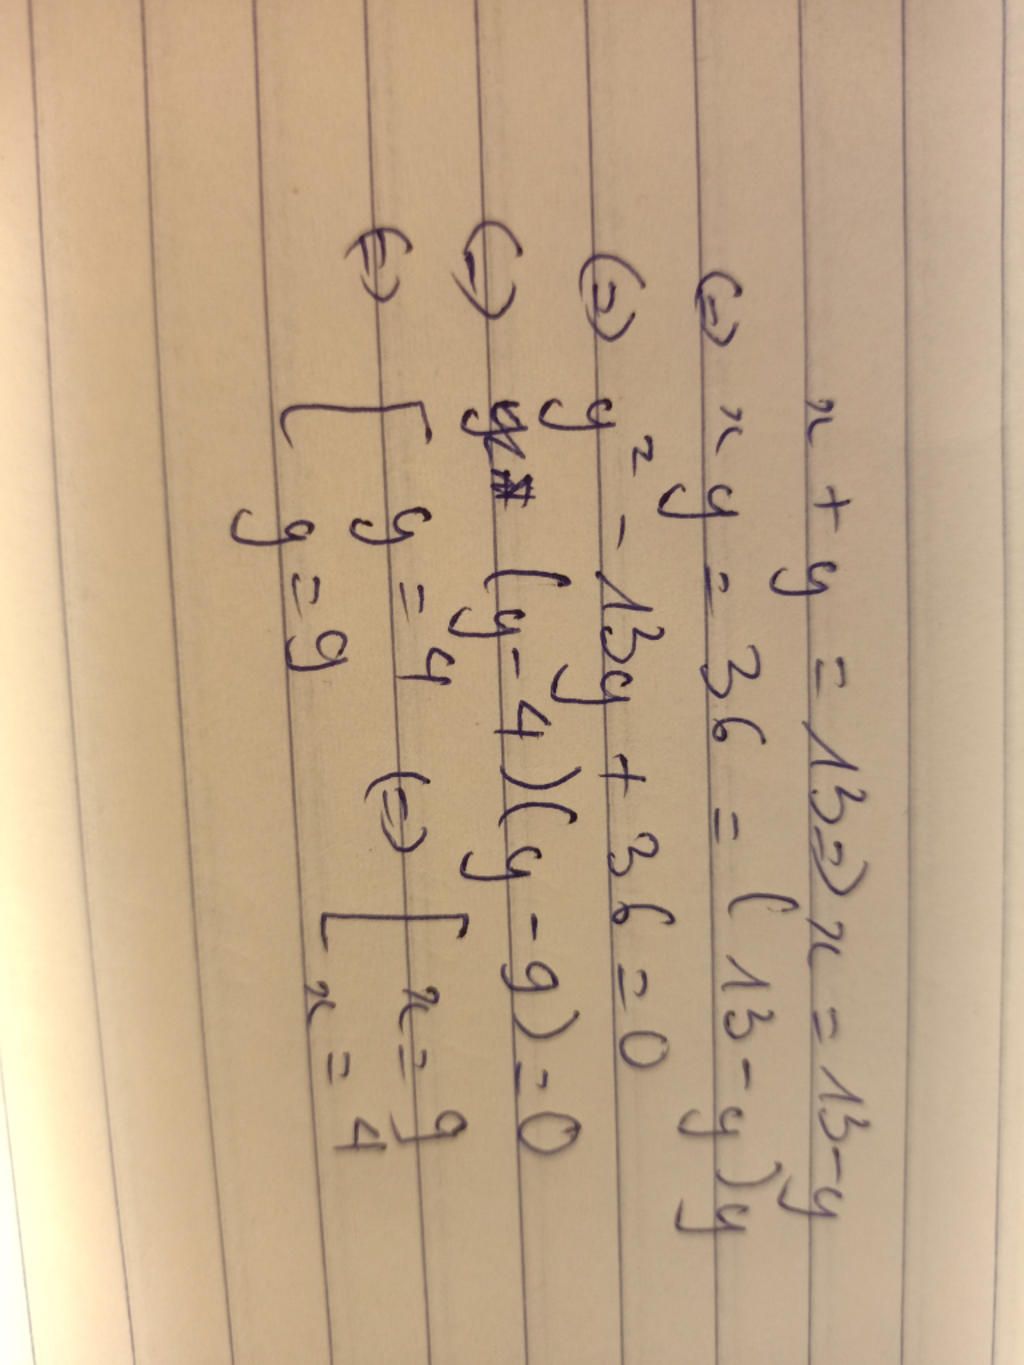 x + y = 13 => x = 13 - y
<=> xy = 36 = (13 - y)y
<=> y² - 13y + 36 = 0
<=> (y - 4)(y - 9) = 0
<=> [ y = 4 <=> [ x = 9
y = 9 x = 4